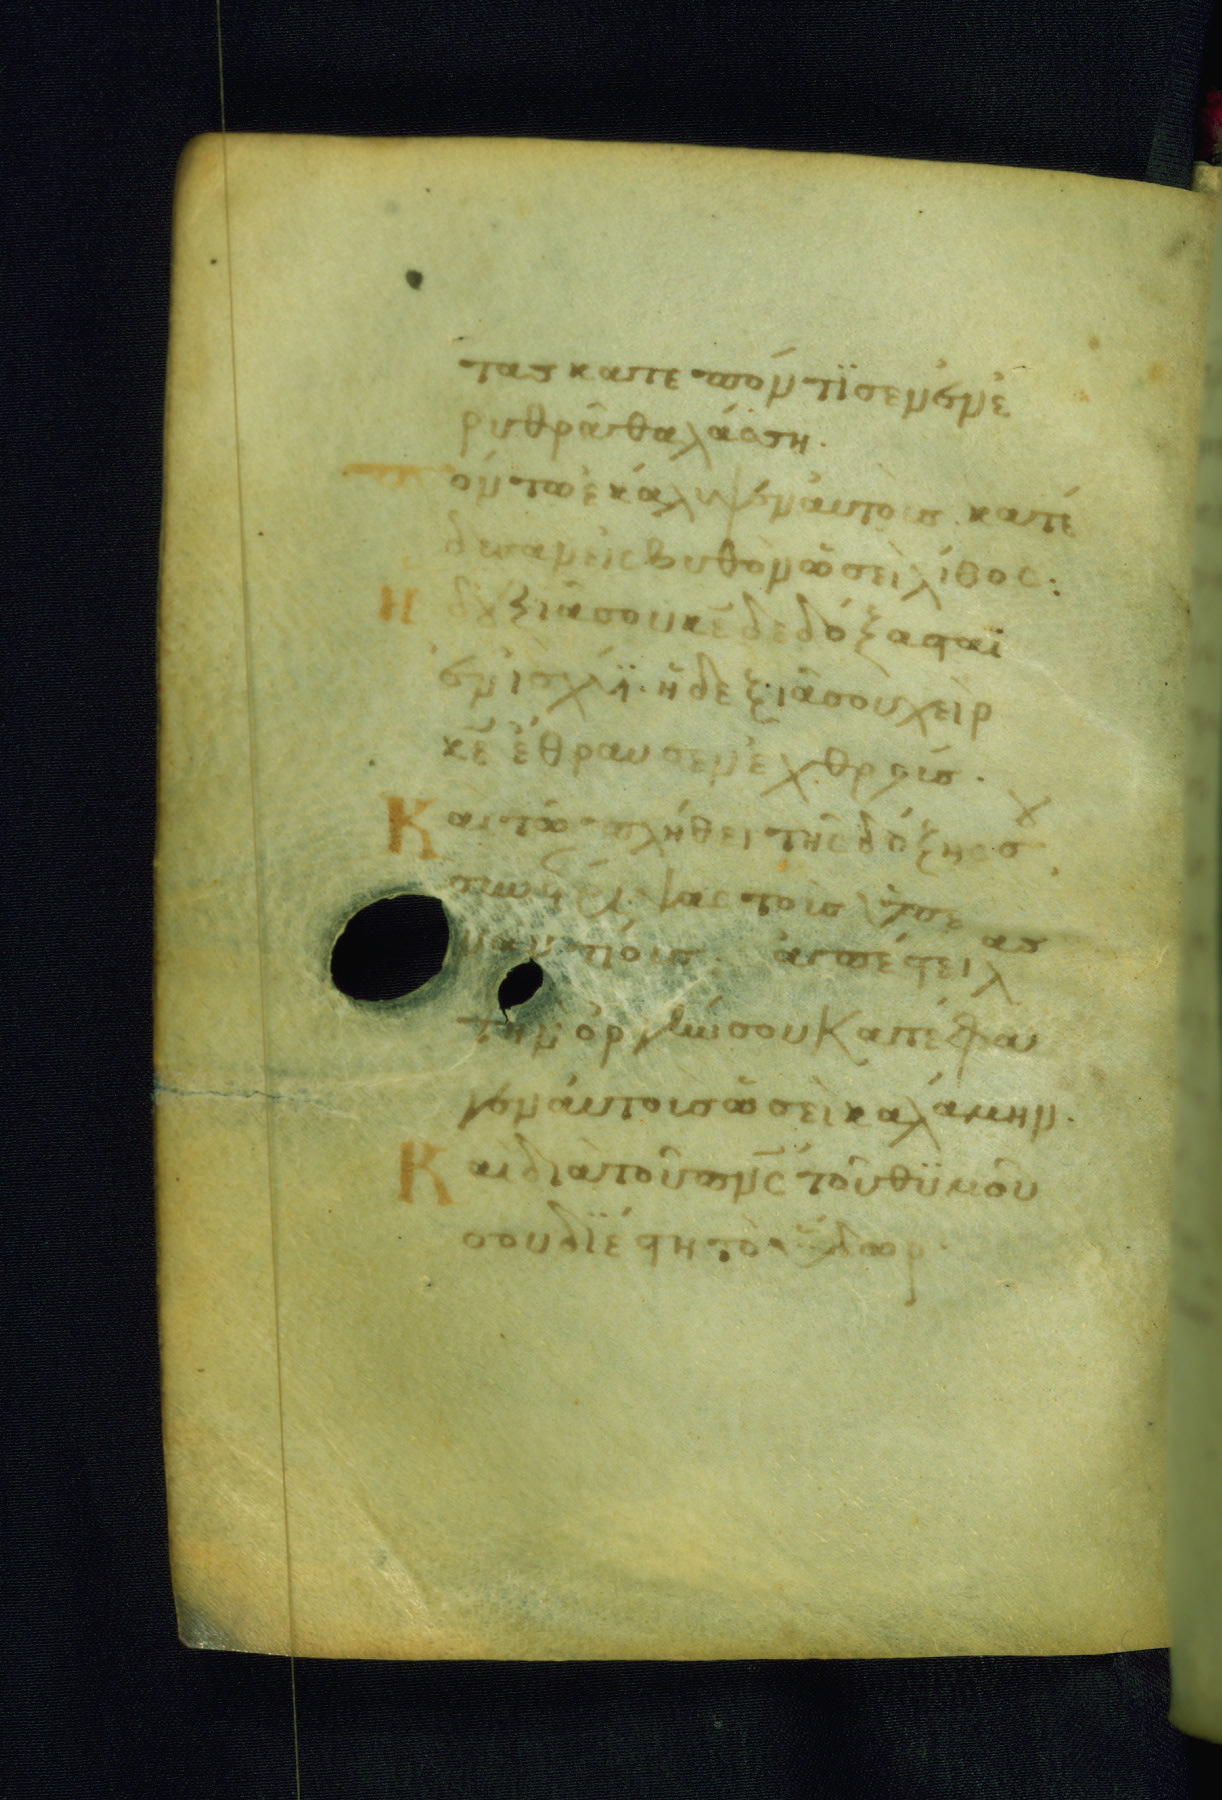 τασ κατεπόντϊσεν ἐν ἐ
ρυθρᾶ θαλάσση.
Πόντω ἐκάλυψεν ἀυτούσ. κατέ
δυσαν εἰς βυθὸν ὡσεὶ λίθος:
Η δεξιά σου κε δεδόξασται
ἐν ἰσχύϊ. ἡ δεξιά σου χεὶρ
κε ἔθραυσεν ἐχθρούσ.
Καὶ τῶ πλήθει τῆς δόξης σου
συνέτριψας τοὺσ ὑπε
ναντίουσ. ἀπέστειλας
τὴν ὀργήν σου κατέφαγεν
ἀυτοὺσ ὡσεὶ καλάμην.
Καὶ διὰ τοῦ πνς τοῦ θϋμοῦ
σου διέστη τὸ ὕδωρ.